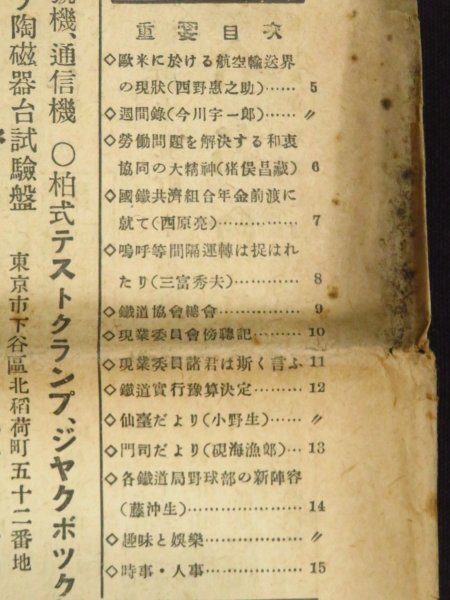 重要目次
◇歐米に於ける航空輸送界
の現狀(西野惠之助)…… 5
◇週間錄(今川宇一郎)…… 〃
◇勞働問題を解決する和衷
協同の大精神(猪俣昌藏) 6
◇國鐵共濟組合年金前渡に
就て(西原亮)…………… 7
◇嗚呼等間隔運轉は捉はれ
たり(三富秀夫)………… 8
◇鐵道協會總會…………… 9
◇現業委員會傍聽記……… 10
◇現業委員諸君は斯く言ふ 11
◇鐵道實行豫算決定……… 12
◇仙臺だより(小野生)…… 〃
◇門司だより(硯海漁郎)… 13
◇各鐵道局野球部の新陣容
(藤沖生)………………… 14
◇趣味と娛樂……………… 〃
◇時事・人事……………… 15
號機、通信機 〇柏式テストクランプ、ジヤクボツク
陶磁器台試驗盤
東京市下谷區北稻荷町五十二番地